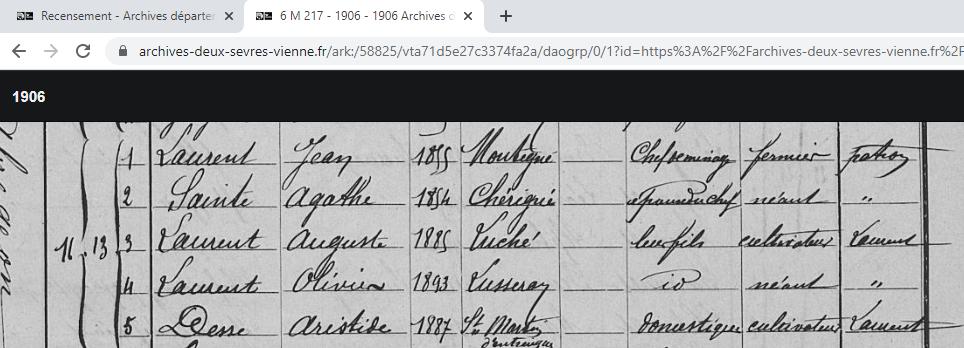 Recensement - Archives départer
6 M 217 - 1906 - 1906 Archives d
archives-deux-sevres-vienne.fr/ark:/58825/vta71d5e27c3374fa2a/daogrp/0/1?id=https%3A%2F%2Farchives-deux-sevres-vienne.fr%2F
1906
1 Laurent Jean 1855 Montigné Chef de ménage fermier patron
2 Sainte Agathe 1854 Chérigné épouse du chef néant "
11 13 3 Laurent Auguste 1885 Luché leur fils cultivateur Laurent
4 Laurent Olivier 1893 Lusseray id néant "
5 Desse Aristide 1887 St Martin domestique cultivateur Laurent
d'entraigues